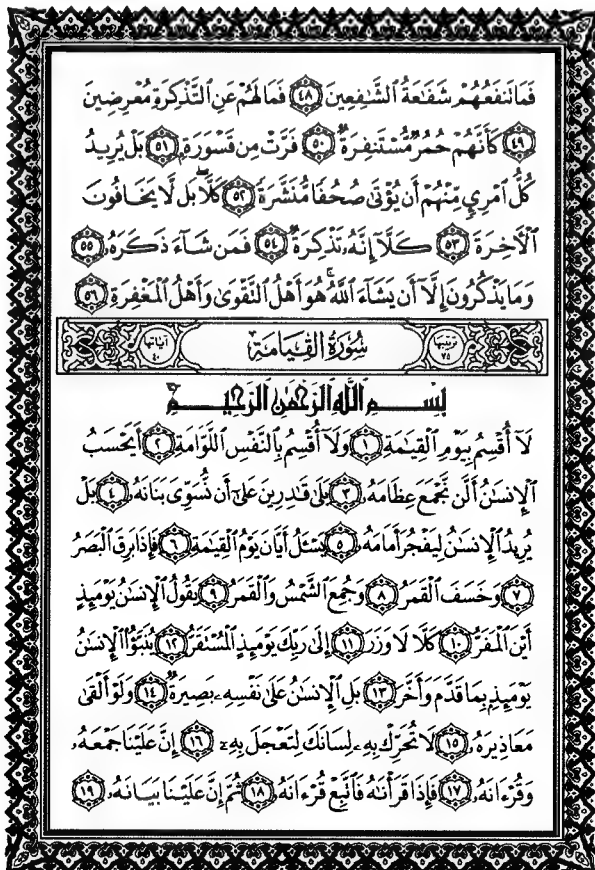 فَمَا تَنفَعُهُمْ شَفَـٰعَةُ ٱلشَّـٰفِعِينَ ٤٨ فَمَا لَهُمْ عَنِ ٱلتَّذْكِرَةِ مُعْرِضِينَ
٤٩ كَأَنَّهُمْ حُمُرٌ مُّسْتَنفِرَةٌ ٥٠ فَرَّتْ مِن قَسْوَرَةٍ ٥١ بَلْ يُرِيدُ
كُلُّ ٱمْرِئٍ مِّنْهُمْ أَن يُؤْتَىٰ صُحُفًا مُّنَشَّرَةً ٥٢ كَلَّا ۖ بَل لَّا يَخَافُونَ
ٱلْأَخِرَةَ ٥٣ كَلَّآ إِنَّهُۥ تَذْكِرَةٌ ٥٤ فَمَن شَآءَ ذَكَرَهُۥ ٥٥
وَمَا يَذْكُرُونَ إِلَّآ أَن يَشَآءَ ٱللَّهُ ۚ هُوَ أَهْلُ ٱلتَّقْوَىٰ وَأَهْلُ ٱلْمَغْفِرَةِ ٥٦
ترتيبها ٧٥ سُورَةُ الْقِيَامَةِ آياتها ٤٠
بِسْمِ ٱللَّهِ ٱلرَّحْمَـٰنِ ٱلرَّحِيمِ
لَآ أُقْسِمُ بِيَوْمِ ٱلْقِيَـٰمَةِ ١ وَلَآ أُقْسِمُ بِٱلنَّفْسِ ٱللَّوَّامَةِ ٢ أَيَحْسَبُ
ٱلْإِنسَـٰنُ أَلَّن نَّجْمَعَ عِظَامَهُۥ ٣ بَلَىٰ قَـٰدِرِينَ عَلَىٰٓ أَن نُّسَوِّىَ بَنَانَهُۥ ٤ بَلْ
يُرِيدُ ٱلْإِنسَـٰنُ لِيَفْجُرَ أَمَامَهُۥ ٥ يَسْـَٔلُ أَيَّانَ يَوْمُ ٱلْقِيَـٰمَةِ ٦ فَإِذَا بَرِقَ ٱلْبَصَرُ
٧ وَخَسَفَ ٱلْقَمَرُ ٨ وَجُمِعَ ٱلشَّمْسُ وَٱلْقَمَرُ ٩ يَقُولُ ٱلْإِنسَـٰنُ يَوْمَئِذٍ
أَيْنَ ٱلْمَفَرُّ ١٠ كَلَّا لَا وَزَرَ ١١ إِلَىٰ رَبِّكَ يَوْمَئِذٍ ٱلْمُسْتَقَرُّ ١٢ يُنَبَّؤُا۟ ٱلْإِنسَـٰنُ
يَوْمَئِذٍۭ بِمَا قَدَّمَ وَأَخَّرَ ١٣ بَلِ ٱلْإِنسَـٰنُ عَلَىٰ نَفْسِهِۦ بَصِيرَةٌ ١٤ وَلَوْ أَلْقَىٰ
مَعَاذِيرَهُۥ ١٥ لَا تُحَرِّكْ بِهِۦ لِسَانَكَ لِتَعْجَلَ بِهِۦٓ ١٦ إِنَّ عَلَيْنَا جَمْعَهُۥ
وَقُرْءَانَهُۥ ١٧ فَإِذَا قَرَأْنَـٰهُ فَٱتَّبِعْ قُرْءَانَهُۥ ١٨ ثُمَّ إِنَّ عَلَيْنَا بَيَانَهُۥ ١٩